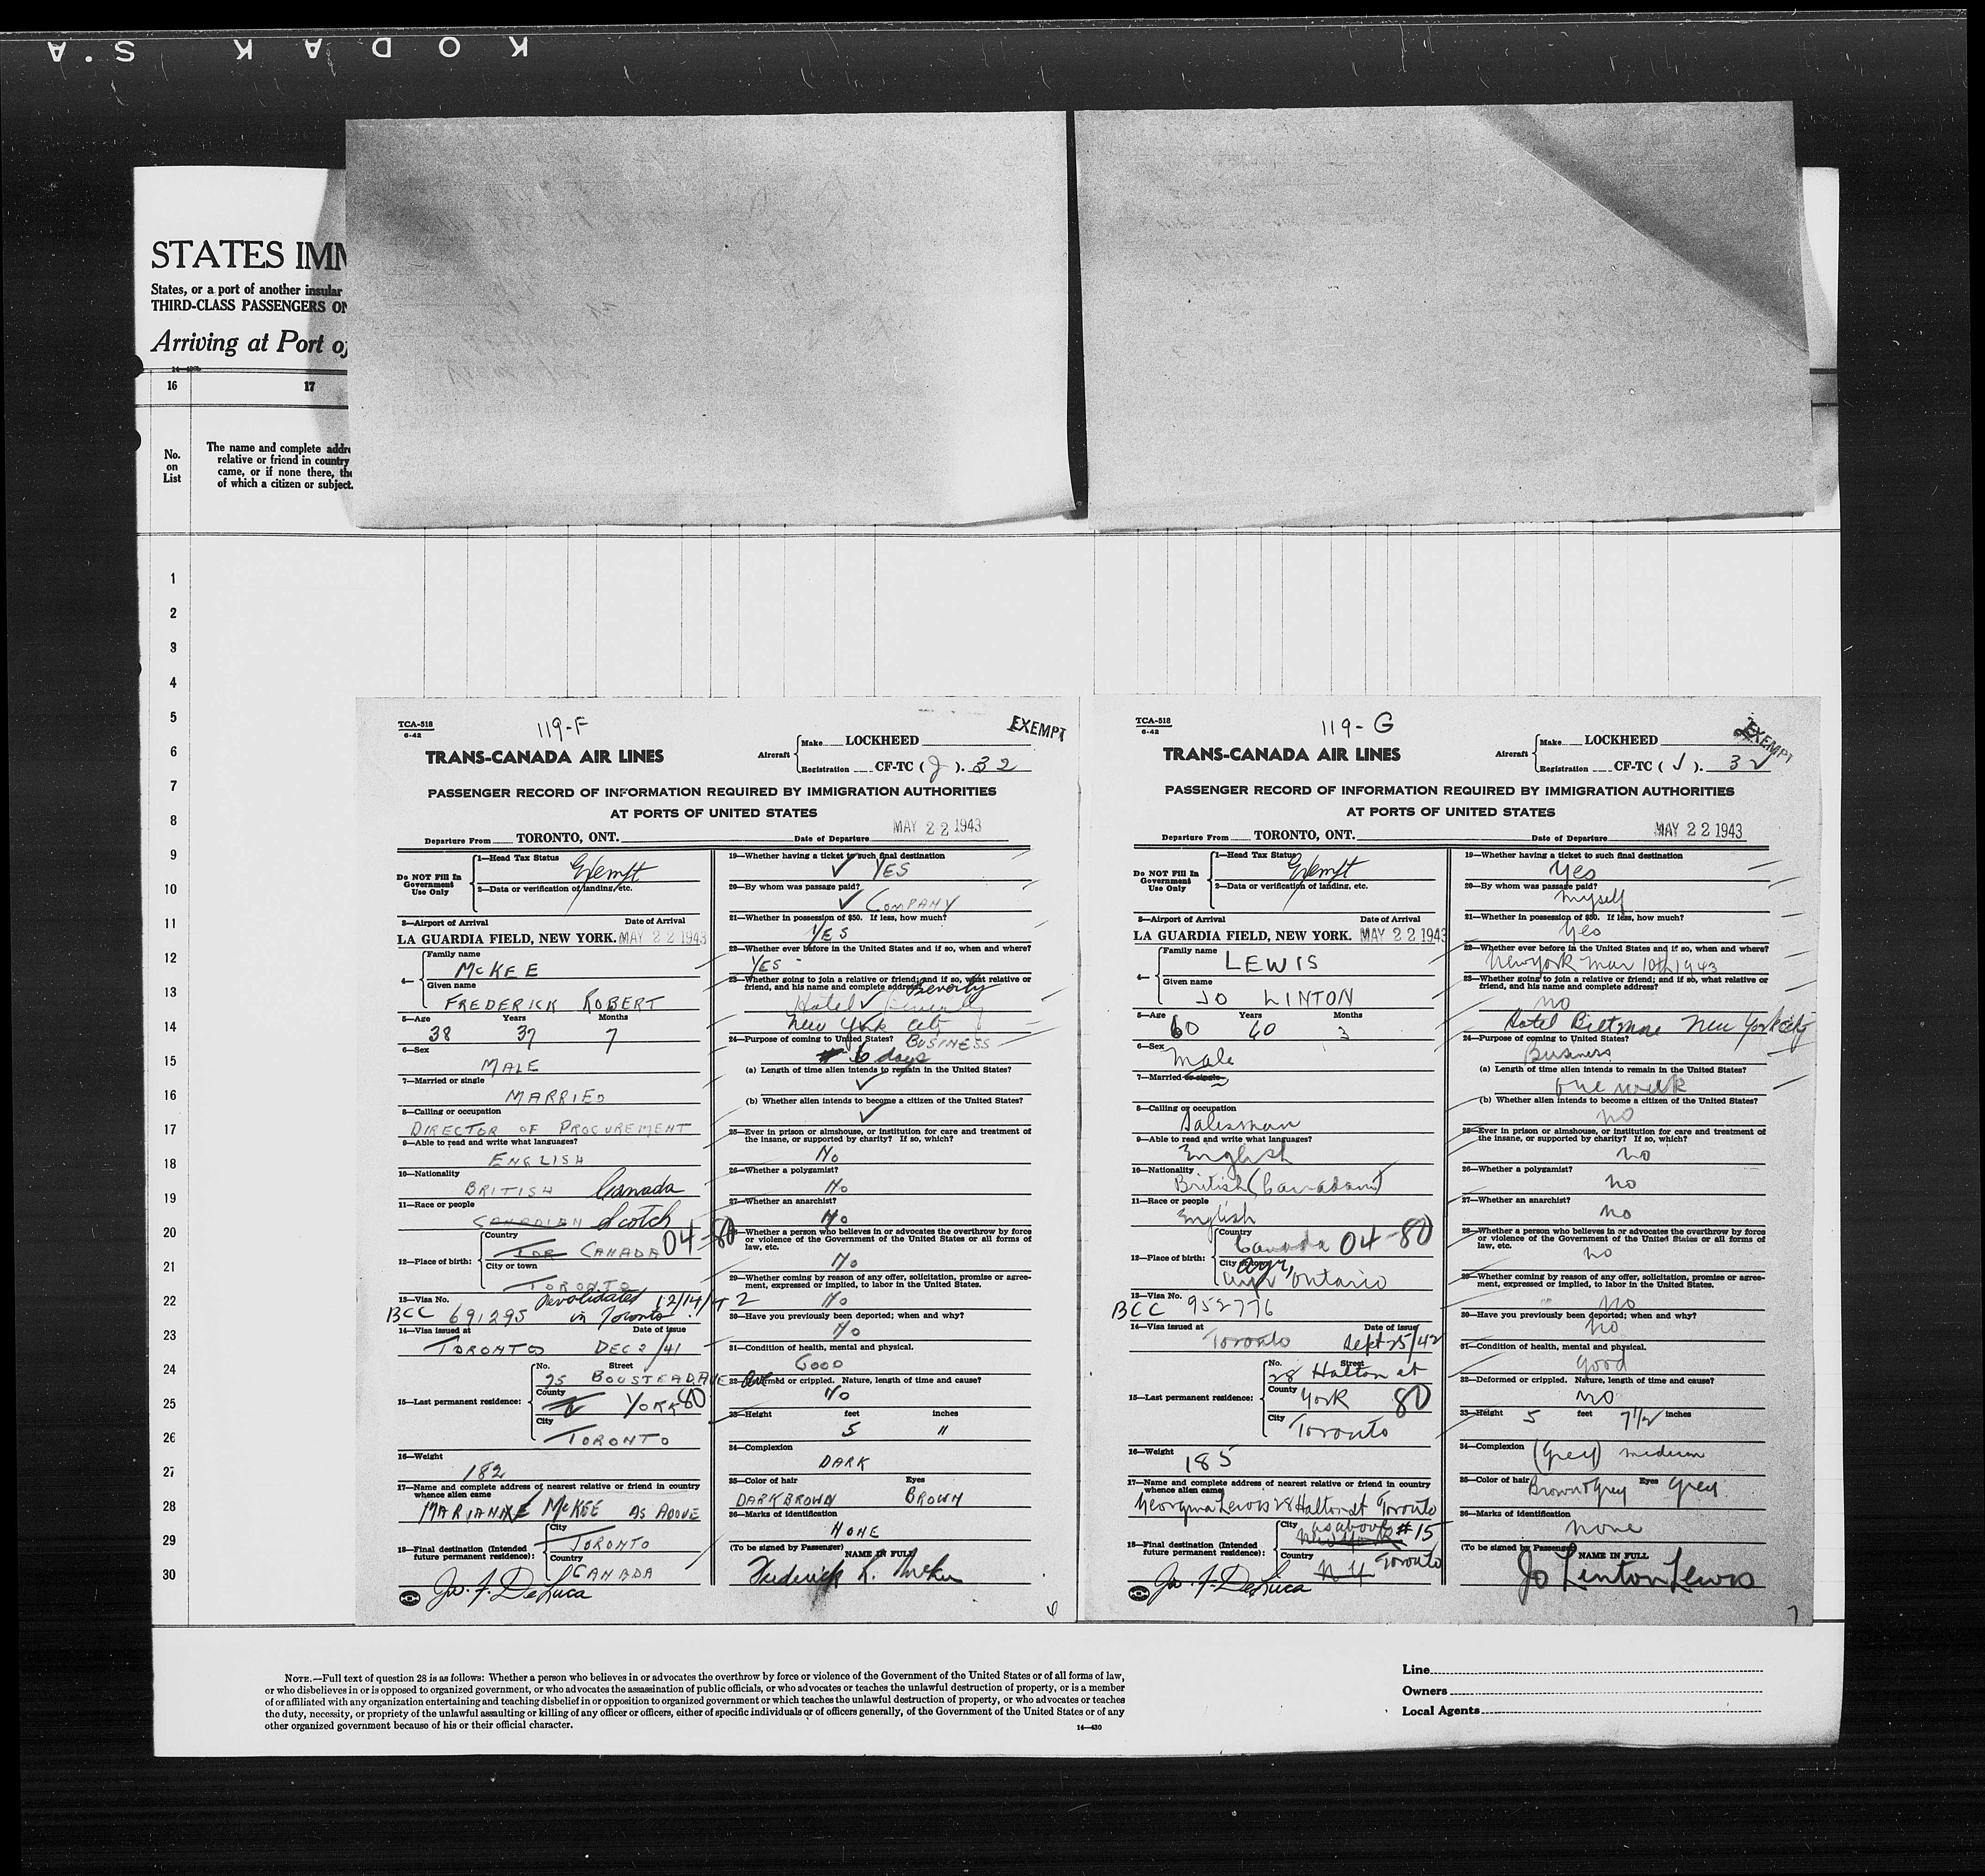 KODAK S.A
STATES IMM
States, or a port of another insular
THIRD-CLASS PASSENGERS ON
Arriving at Port of
16 17
No. on List
The name and complete addre
relative or friend in country
came, or if none there, the
of which a citizen or subject.
1
2
3
4
5
6
7
8
9
10
11
12
13
14
15
16
17
18
19
20
21
22
23
24
25
26
27
28
29
30
TCA-518
6-42
119-F
EXEMPT
TRANS-CANADA AIR LINES
Aircraft Make LOCKHEED
Registration CF-TC (J). 32
PASSENGER RECORD OF INFORMATION REQUIRED BY IMMIGRATION AUTHORITIES
AT PORTS OF UNITED STATES
Departure From TORONTO, ONT. Date of Departure MAY 22 1943
Do NOT Fill In Government Use Only
1—Head Tax Status Exempt
2—Data or verification of landing, etc.
3—Airport of Arrival Date of Arrival
LA GUARDIA FIELD, NEW YORK. MAY 22 1943
4— Family name
McKEE
Given name
FREDERICK ROBERT
5—Age Years Months
38 37 7
6—Sex
MALE
7—Married or single
MARRIED
8—Calling or occupation
DIRECTOR OF PROCUREMENT
9—Able to read and write what languages?
ENGLISH
10—Nationality
BRITISH Canada
11—Race or people
CANADIAN Scotch
12—Place of birth: Country
TOR CANADA 04-80
City or town
TORONTO
13—Visa No. Revalidated 12/14/42
BCC 691295 in Toronto
14—Visa issued at Date of issue
TORONTO DEC 2/41
15—Last permanent residence: No. Street
75 BOUSTEAD AVE
County
YORK 80
City
TORONTO
16—Weight
182
17—Name and complete address of nearest relative or friend in country
whence alien came
MARIANNE McKEE AS ABOVE
18—Final destination (Intended future permanent residence): City
TORONTO
Country
CANADA
Jo. F. DeLuca
19—Whether having a ticket to such final destination
YES
20—By whom was passage paid?
COMPANY
21—Whether in possession of $50. If less, how much?
YES
22—Whether ever before in the United States and if so, when and where?
YES
23—Whether going to join a relative or friend; and if so, what relative or
friend, and his name and complete address? Beverly
Hotel Beverly
New York City
24—Purpose of coming to United States? BUSINESS
6 days
(a) Length of time alien intends to remain in the United States?
(b) Whether alien intends to become a citizen of the United States?
25—Ever in prison or almshouse, or institution for care and treatment of
the insane, or supported by charity? If so, which?
No
26—Whether a polygamist?
No
27—Whether an anarchist?
No
28—Whether a person who believes in or advocates the overthrow by force
or violence of the Government of the United States or all forms of
law, etc.
No
29—Whether coming by reason of any offer, solicitation, promise or agree-
ment, expressed or implied, to labor in the United States.
No
30—Have you previously been deported; when and why?
No
31—Condition of health, mental and physical.
GOOD
32—Deformed or crippled. Nature, length of time and cause?
No
33—Height feet inches
5 11
34—Complexion
DARK
35—Color of hair Eyes
DARK BROWN BROWN
36—Marks of identification
NONE
(To be signed by Passenger)
NAME IN FULL
Frederick R. McKee
6
TCA-518
6-42
119-G
EXEMPT
TRANS-CANADA AIR LINES
Aircraft Make LOCKHEED
Registration CF-TC (J). 32
PASSENGER RECORD OF INFORMATION REQUIRED BY IMMIGRATION AUTHORITIES
AT PORTS OF UNITED STATES
Departure From TORONTO, ONT. Date of Departure MAY 22 1943
Do NOT Fill In Government Use Only
1—Head Tax Status Exempt
2—Data or verification of landing, etc.
3—Airport of Arrival Date of Arrival
LA GUARDIA FIELD, NEW YORK. MAY 22 1943
4— Family name
LEWIS
Given name
JO LINTON
5—Age Years Months
60 60 3
6—Sex
Male
7—Married or single
8—Calling or occupation
Salesman
9—Able to read and write what languages?
English
10—Nationality
British (Canadian)
11—Race or people
English
12—Place of birth: Country
Canada 04-80
City or town
Ayr, Ayr Ontario
13—Visa No.
BCC 952776
14—Visa issued at Date of issue
Toronto Sept 25/42
15—Last permanent residence: No. Street
28 Halton st
County
York 80
City
Toronto
16—Weight
185
17—Name and complete address of nearest relative or friend in country
whence alien came
Georgina Lewis 28 Halton st Toronto
18—Final destination (Intended future permanent residence): City
as above #15
New York
Country
N Y Toronto
Jo. F. DeLuca
19—Whether having a ticket to such final destination
Yes
20—By whom was passage paid?
Myself
21—Whether in possession of $50. If less, how much?
Yes
22—Whether ever before in the United States and if so, when and where?
New york Mar 10th 1943
23—Whether going to join a relative or friend; and if so, what relative or
friend, and his name and complete address?
no
Hotel Biltmore New York city
24—Purpose of coming to United States?
Business
(a) Length of time alien intends to remain in the United States?
one week
(b) Whether alien intends to become a citizen of the United States?
no
25—Ever in prison or almshouse, or institution for care and treatment of
the insane, or supported by charity? If so, which?
no
26—Whether a polygamist?
no
27—Whether an anarchist?
no
28—Whether a person who believes in or advocates the overthrow by force
or violence of the Government of the United States or all forms of
law, etc.
no
29—Whether coming by reason of any offer, solicitation, promise or agree-
ment, expressed or implied, to labor in the United States.
no
30—Have you previously been deported; when and why?
no
31—Condition of health, mental and physical.
good
32—Deformed or crippled. Nature, length of time and cause?
no
33—Height 5 feet 7 1/2 inches
34—Complexion (Grey) medium
35—Color of hair Brown & Grey Eyes Grey
36—Marks of identification
none
(To be signed by Passenger)
NAME IN FULL
Jo Linton Lewis
7
NOTE.—Full text of question 28 is as follows: Whether a person who believes in or advocates the overthrow by force or violence of the Government of the United States or of all forms of law,
or who disbelieves in or is opposed to organized government, or who advocates the assassination of public officials, or who advocates or teaches the unlawful destruction of property, or is a member
of or affiliated with any organization entertaining and teaching disbelief in or opposition to organized government or which teaches the unlawful destruction of property, or who advocates or teaches
the duty, necessity, or propriety of the unlawful assaulting or killing of any officer or officers, either of specific individuals or of officers generally, of the Government of the United States or of any
other organized government because of his or their official character.
14—430
Line
Owners
Local Agents